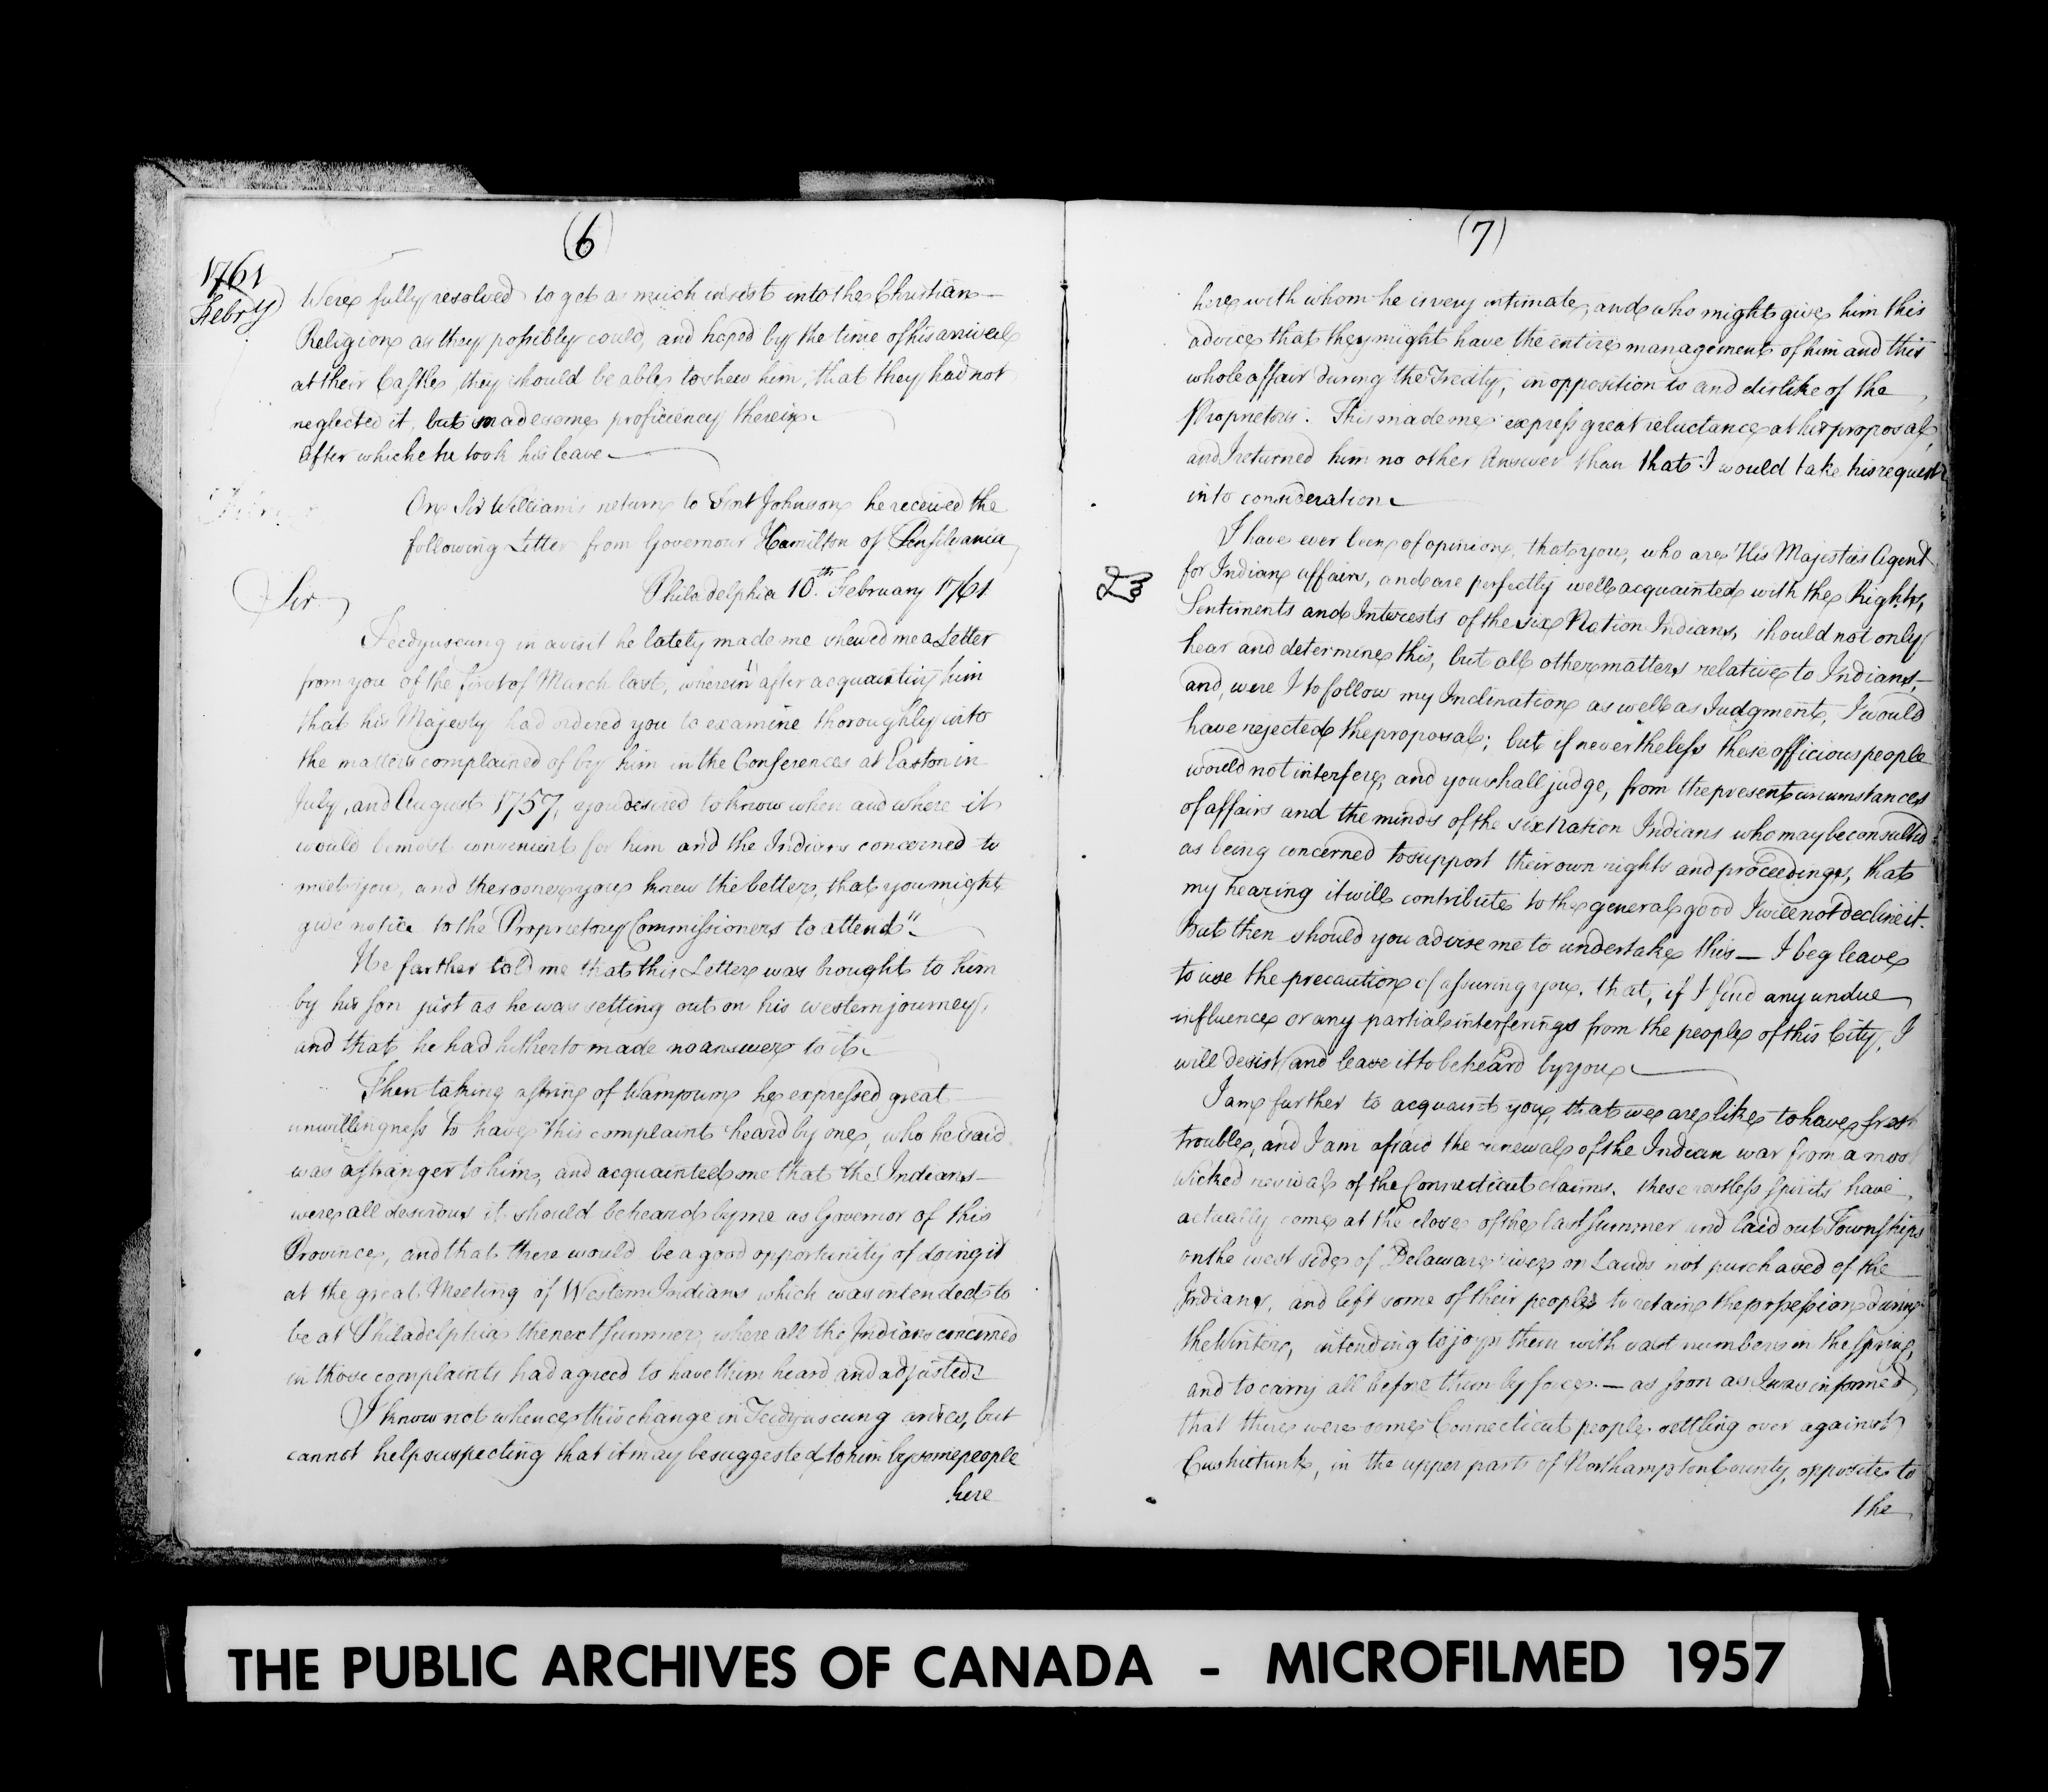 (6)
1761
Febry
Were fully resolved to get as much insist into the Christian
Religion as they possibly could, and hoped by the time of his arriveal
at their Castles they should be able to shew him, that they had not
neglected it, but made some proficiency therein.
After whiche he took his leave
On Sir William's return to Fort Johnson he received the
following Letter from Governour Hamilton of Pensilvania
Philadelphia 10.th February 1761
Sir
Teedyuscung in a visit he lately made me shewed me a Letter
from you of the first of March last, wherein "after acquainting him
that his Majesty had ordered you to examine thoroughly into
the matters complained of by him in the Conferences at Easton in
July, and August 1757, you desired to know when and where it
would be most convenient for him and the Indians concerned to
meet you, and the sooner you knew the better, that you might
give notice to the Proprietory Commissioners to attend".
He farther told me that this Letter was brought to him
by his son just as he was setting out on his western journey,
and that he had hitherto made no answer to it.
Then taking a string of Wampum he expressed great
unwillingness to have this complaint heard by one, who he said
was a stranger to him, and acquainted me that the Indians
were all desirous it should be heard by me as Governor of this
Province, and that there would be a good opportunity of doing it
at the great Meeting of Western Indians which was intended to
be at Philadelphia the next summer, where all the Indians concerned
in those complaints had agreed to have them heard and adjusted.
I know not whence this change in Teedyuscung arises, but
cannot help suspecting that it may be suggested to him by some people
here
(7)
here with whom he is very intimate, and who might give him this
advice that they might have the entire management of him and this
whole affair during the Treaty, in opposition to and dislike of the
Proprietors. This made me express great reluctance at his proposal,
and I returned him no other Answer than that I would take his request
into consideration.
I have ever been of opinion, that you, who are His Majesties Agent
for Indian affairs, and are perfectly well acquainted with the Rights,
Sentiments and Interests of the six Nation Indians, should not only
hear and determine this, but all other matters relative to Indians,
and, were I to follow my Inclination as well as Judgment, I would
have rejected the proposal; but if nevertheless these officious people
would not interfere, and you shall judge, from the present circumstances
of affairs and the minds of the six Nation Indians who may be consulted
as being concerned to support their own rights and proceedings, that
my hearing it will contribute to the general good I will not decline it.
But then should you advise me to undertake this — I beg leave
to use the precaution of assuring you, that, if I find any undue
influence or any partial interferings from the people of this City, I
will desist and leave it to be heard by you.
I am further to acquaint you, that we are like to have fresh
trouble, and I am afraid the renewal of the Indian war from a most
wicked revival of the Connecticut claims. these restless spirits have
actually come at the close of the last summer and laid out Townships
on the west side of Delaware river on Lands not purchased of the
Indians, and left some of their people to retain the possession during
the Winter, intending to joyn them with vast numbers in the spring,
and to carry all before them by force. — as soon as I was informed
that there were some Connecticut people settling over against
Cushietunk, in the upper parts of Northampton County, opposite to
the
THE PUBLIC ARCHIVES OF CANADA - MICROFILMED 1957